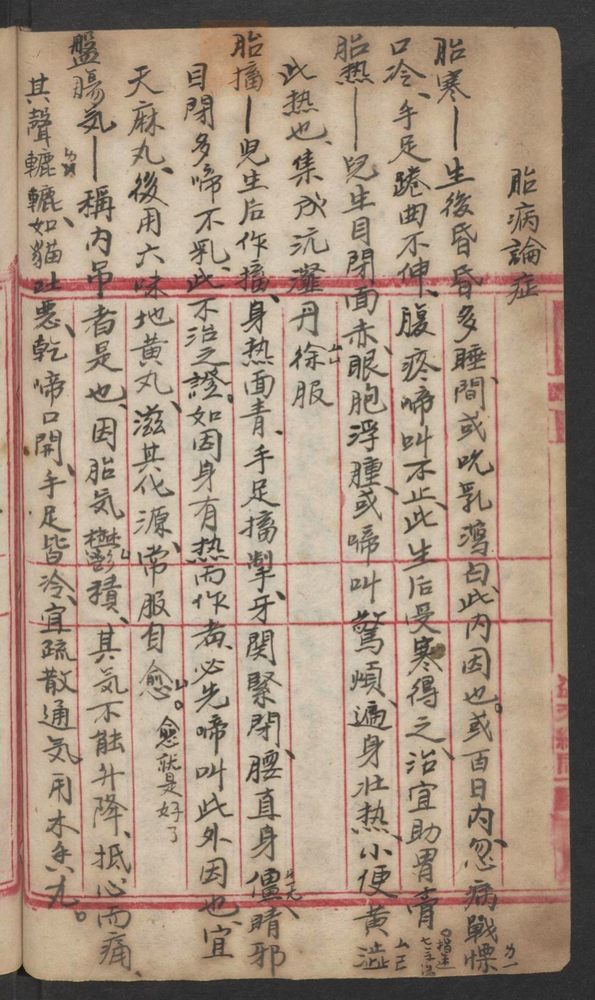 胎病論症
胎寒—生後昏昏多睡、間或吮乳瀉白、此内因也。或百日内、忽病戰慄
口冷、手足踡曲不伸、腹疼啼叫不止、此生后受寒得之、治宜助胃膏
胎热—兒生目閉面赤、眼胞浮腫、或啼叫驚煩、遍身壮热、小便黄澁
此热也、集成沆瀣丹徐服
胎搐—兒生后作搐、身热面青、手足搐掣、牙関緊閉、腰直身僵、睛邪
目閉多啼不乳、此不治之證。如因身有热而作者、必先啼叫此外因也、宜
天麻丸、後用六味地黄丸、滋其化源、常服自愈。愈就是好了
盤腸気—稱内吊者是也、因胎気鬱積、其気不能升降、抵心而痛、
其聲轆轆、如貓吐悪、乾啼口開、手足皆冷、宜疏散通気用木香丸。